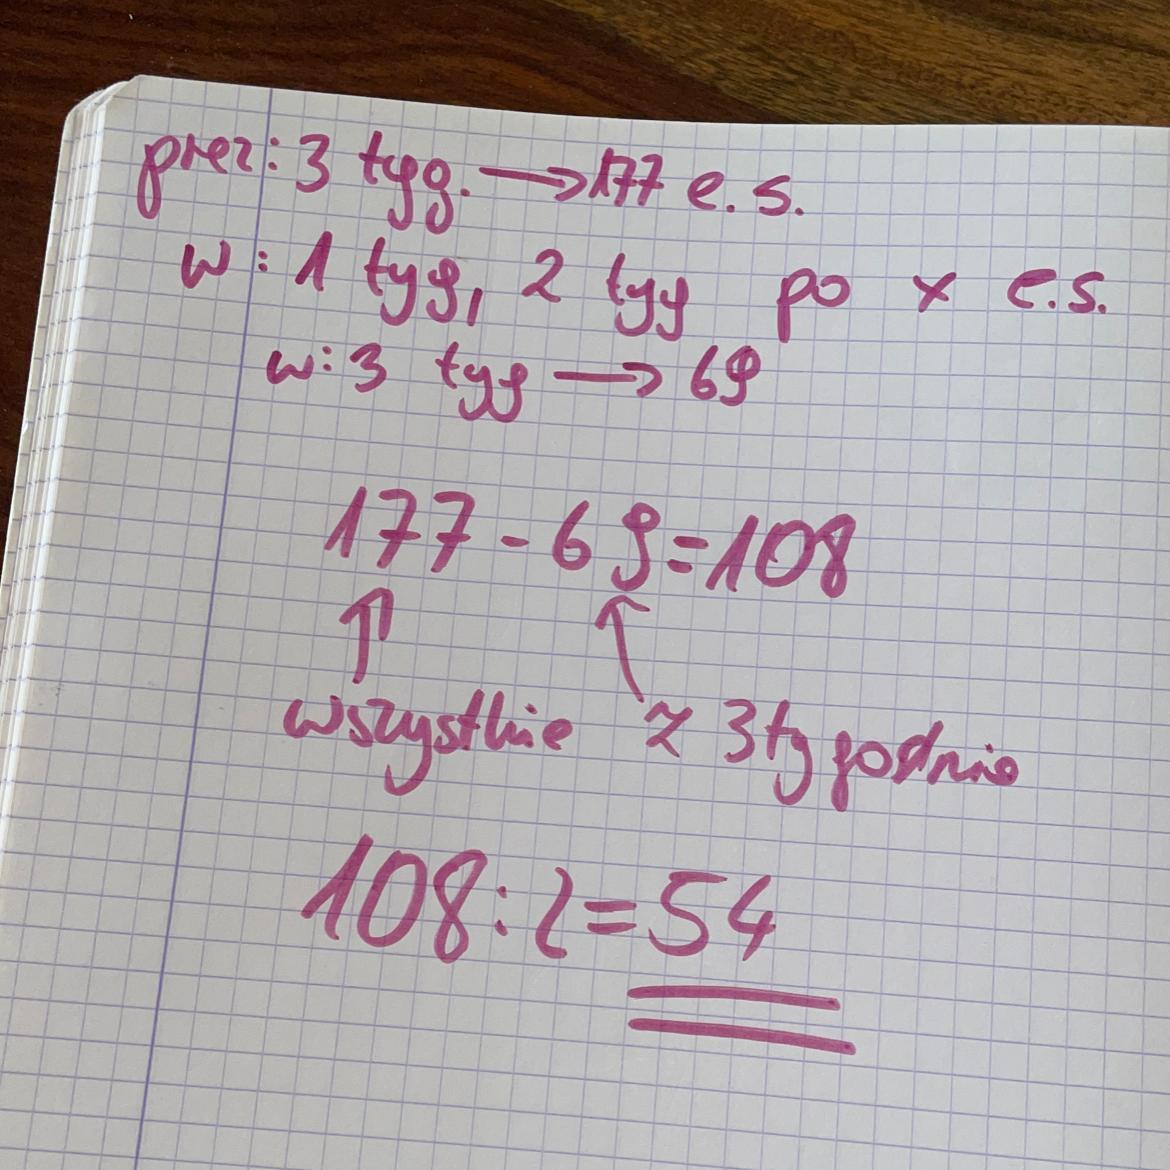 przez: 3 tyg. → 177 e.s.
w: 1 tyg, 2 tyg po x e.s.
w: 3 tyg → 69
177 - 69 = 108
↑ ↑
wszystkie z 3 tygodnia
108 : 2 = 54